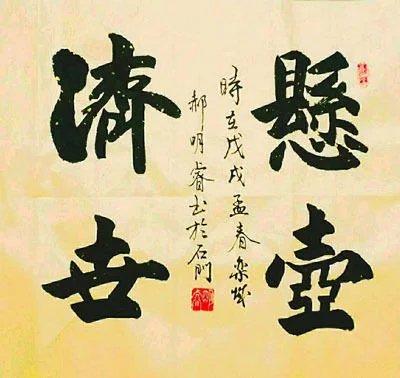 懸壺
濟世
時在戊戌孟春欒城
郝明睿書於石門